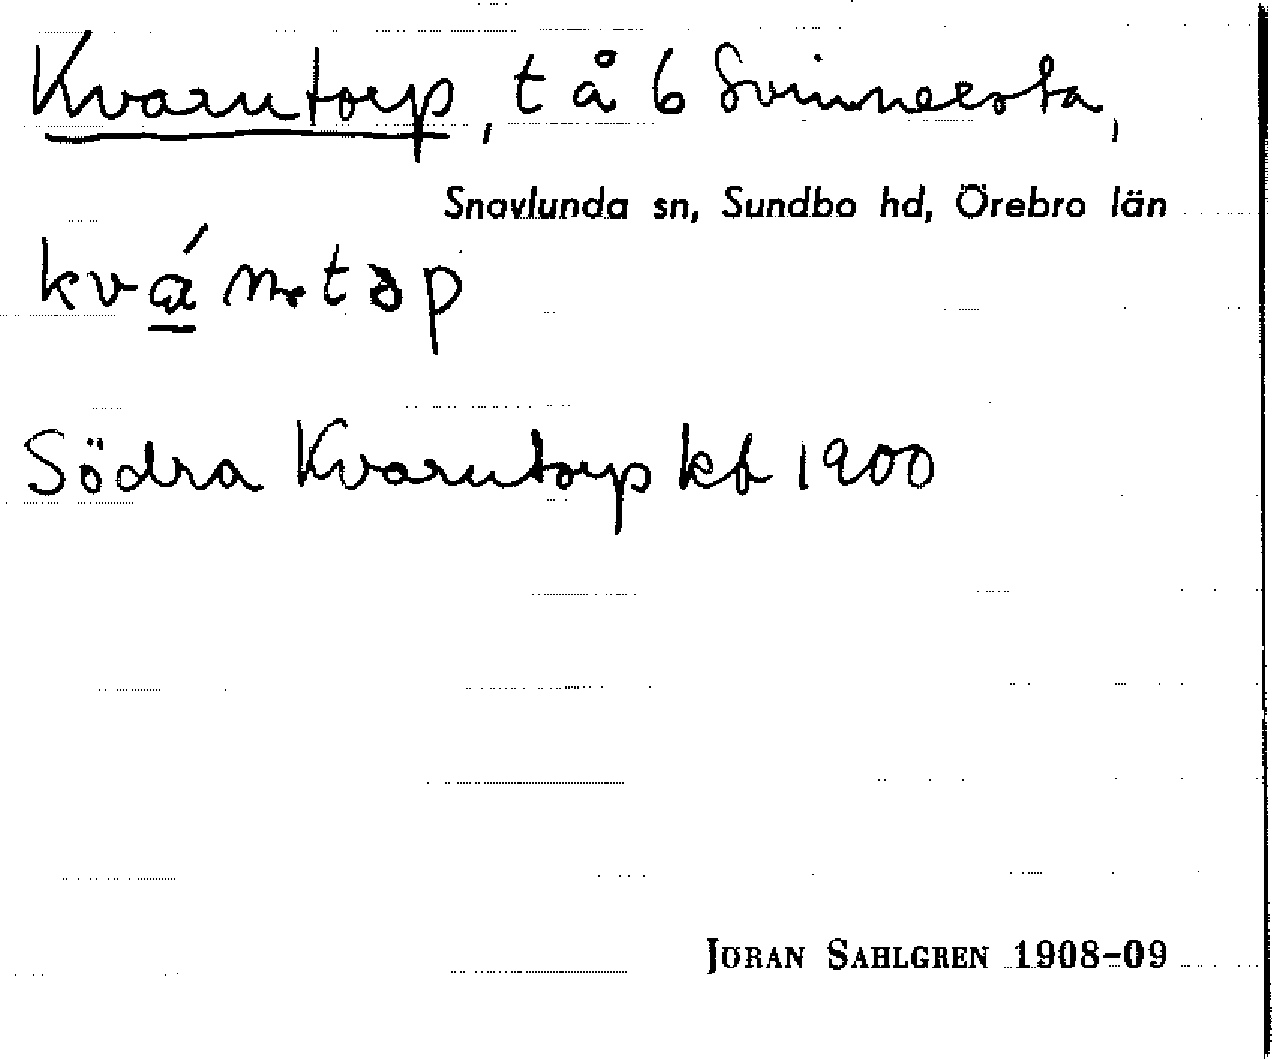 Kvarntorp, t å 6 Svinnersta,
Snavlunda sn, Sundbo hd, Örebro län
kvá̱ntəp
Södra Kvarntorp kb 1900
JÖRAN SAHLGREN 1908-09